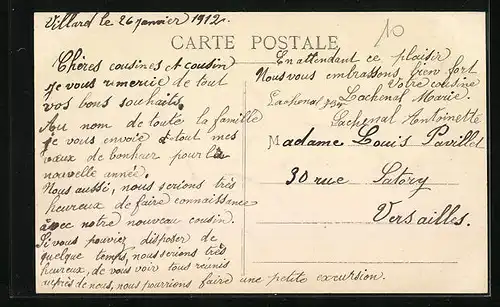 Villard le 26 janvier 1912.
10
CARTE POSTALE
Chères cousines et cousin
Je vous remercie de tout
vos bons souhaits.
Au nom de toute la famille
je vous envoie tout mes
vœux de bonheur pour la
nouvelle année.
Nous aussi, nous serions très
heureux de faire connaissance
avec notre nouveau cousin.
Si vous pouviez disposer de
quelque temps, nous serions très
heureux, de vous voir tous réunis
auprès de nous, nous pourrions faire une petite excursion.
En attendant ce plaisir
Nous vous embrassons bien fort
Votre cousine
Lachenal Marie.
Lachenal
Lachenal Antoinette
Madame Louis Pavillet
30 rue Satory
Versailles.